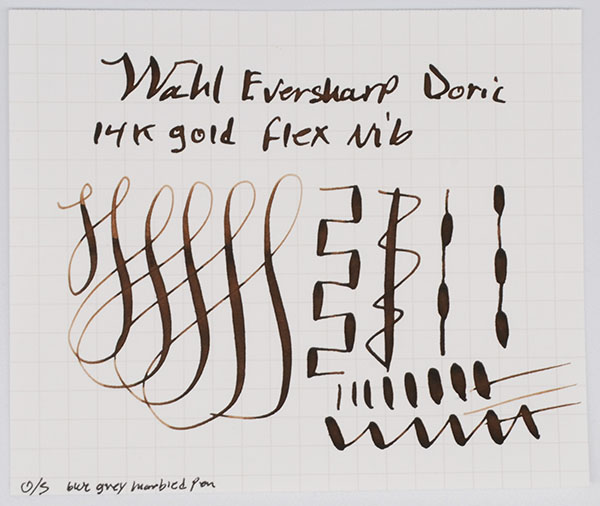 Wahl Eversharp Doric
14K gold flex Nib
O/S grey marbled pen